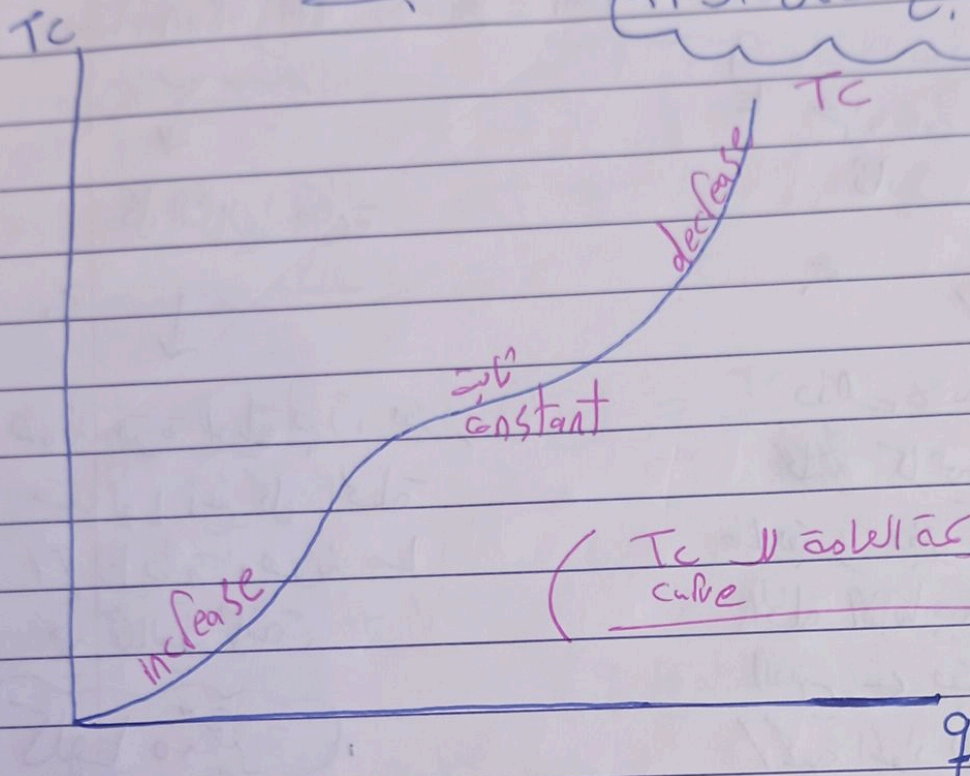 TC
TC
decrease
ثبات
constant
increase
TC الشكل العام لل
curve
q